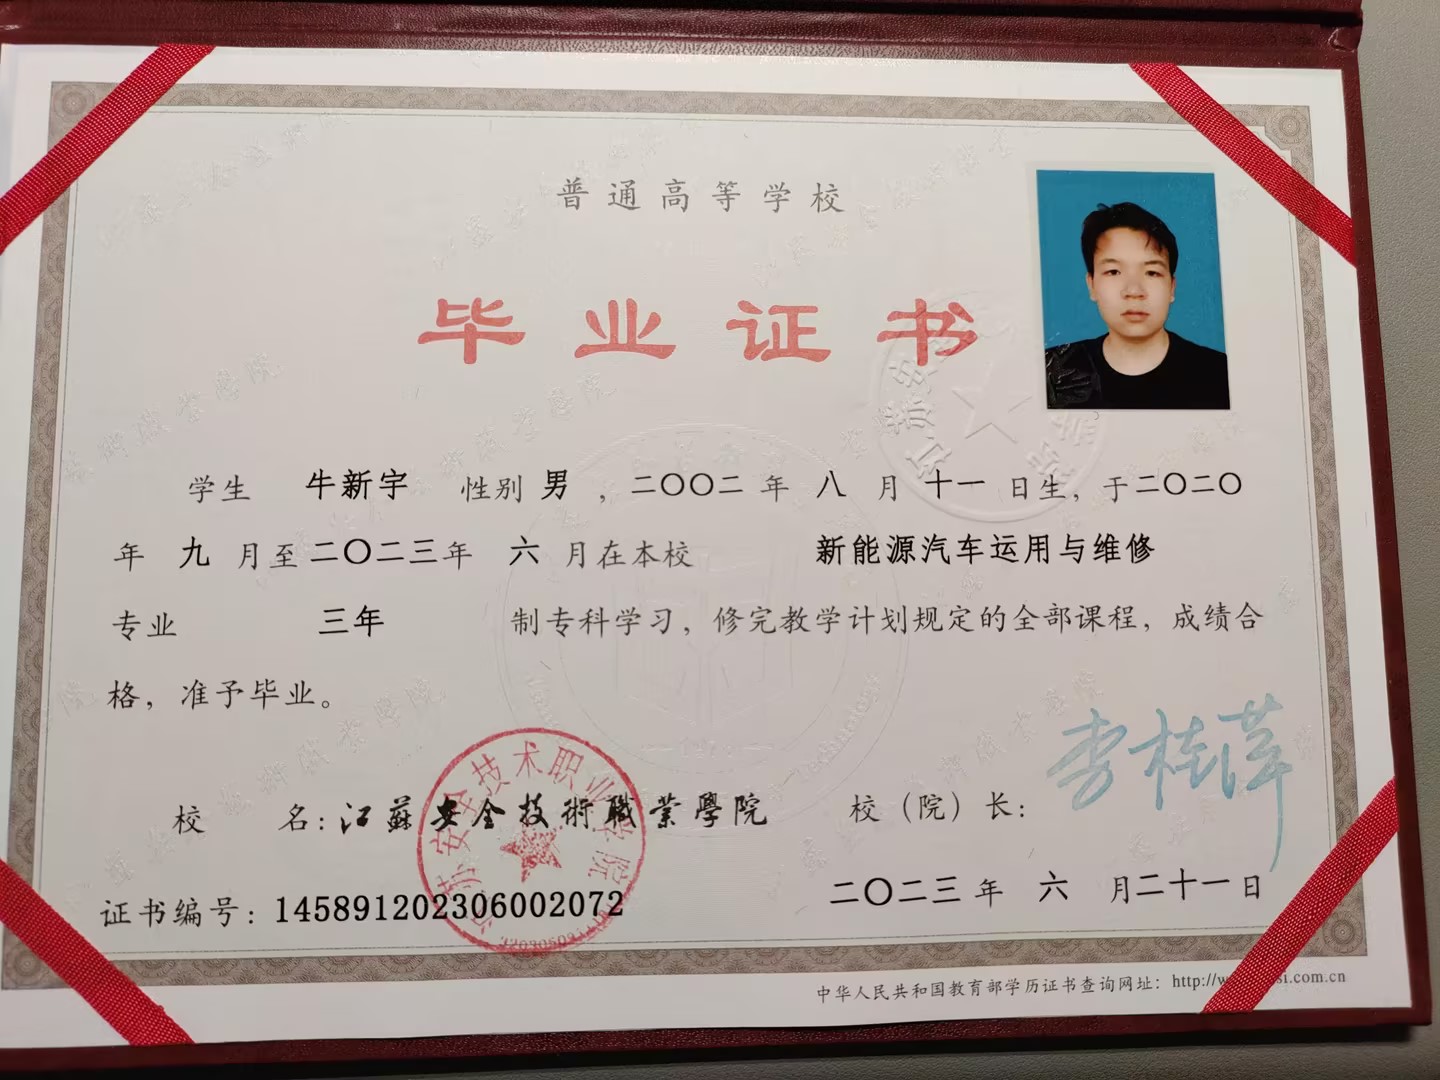 普通高等学校
毕业证书
学生 牛新宇 性别 男 ，二〇〇二 年 八 月 十一 日生，于二〇二〇
年 九 月至 二〇二三年 六 月在本校 新能源汽车运用与维修
专业 三年 制专科学习，修完教学计划规定的全部课程，成绩合
格，准予毕业。
校 名：江蘇安全技術職業學院 校（院）长：李桂萍
江苏安全技术职业学院
证书编号：145891202306002072 二〇二三 年 六 月二十一日
中华人民共和国教育部学历证书查询网址：http://w si.com.cn